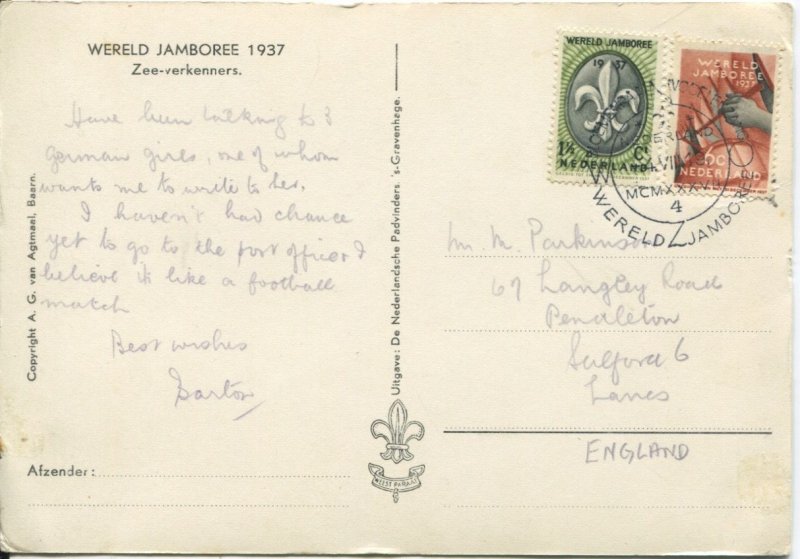 WERELD JAMBOREE 1937
Zee-verkenners.
Have been talking to 3
german girls, one of whom
wants me to write to her.
I haven't had chance
yet to go to the post office I
believe it's like a football
match
Best wishes
Barton
Afzender:
Copyright A. G. van Agtmaal, Baarn.
Uitgave: De Nederlandsche Padvinders. 's-Gravenhage.
WEEST PARAAT
WERELD JAMBOREE
1937
1½ Ct
NEDERLAND
WERELD
JAMBOREE
1937
6ct
NEDERLAND
VIII
MCMXXXVII
4
WERELD JAMBOREE
Mr M. Parkinson
67 Langley Road
Pendleton
Salford 6
Lancs
ENGLAND